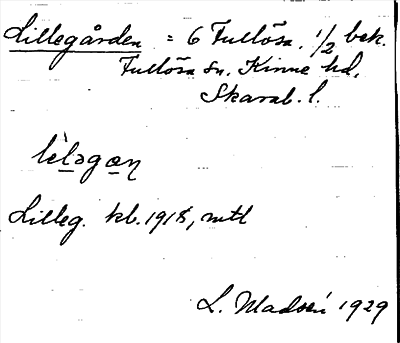 Lillegården = 6 Fullösa, 1/2 bek.
Fullösa sn. Kinne hd.
Skarab. l.
lìləgaƞ
Lilleg. kb. 1918, mtl
L. Madsén 1929